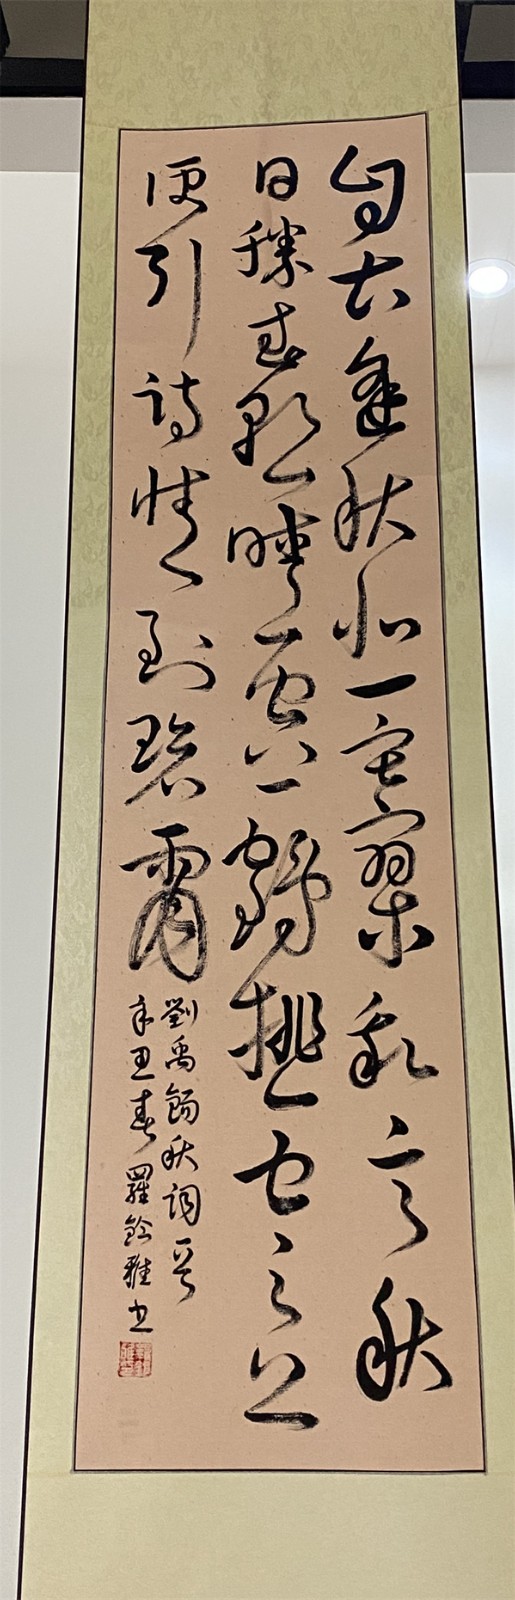 自古逢秋悲寂寥我言秋
日勝春朝晴空一鶴排雲上
便引詩情到碧霄
劉禹錫秋詞
辛丑春羅鈴雅书